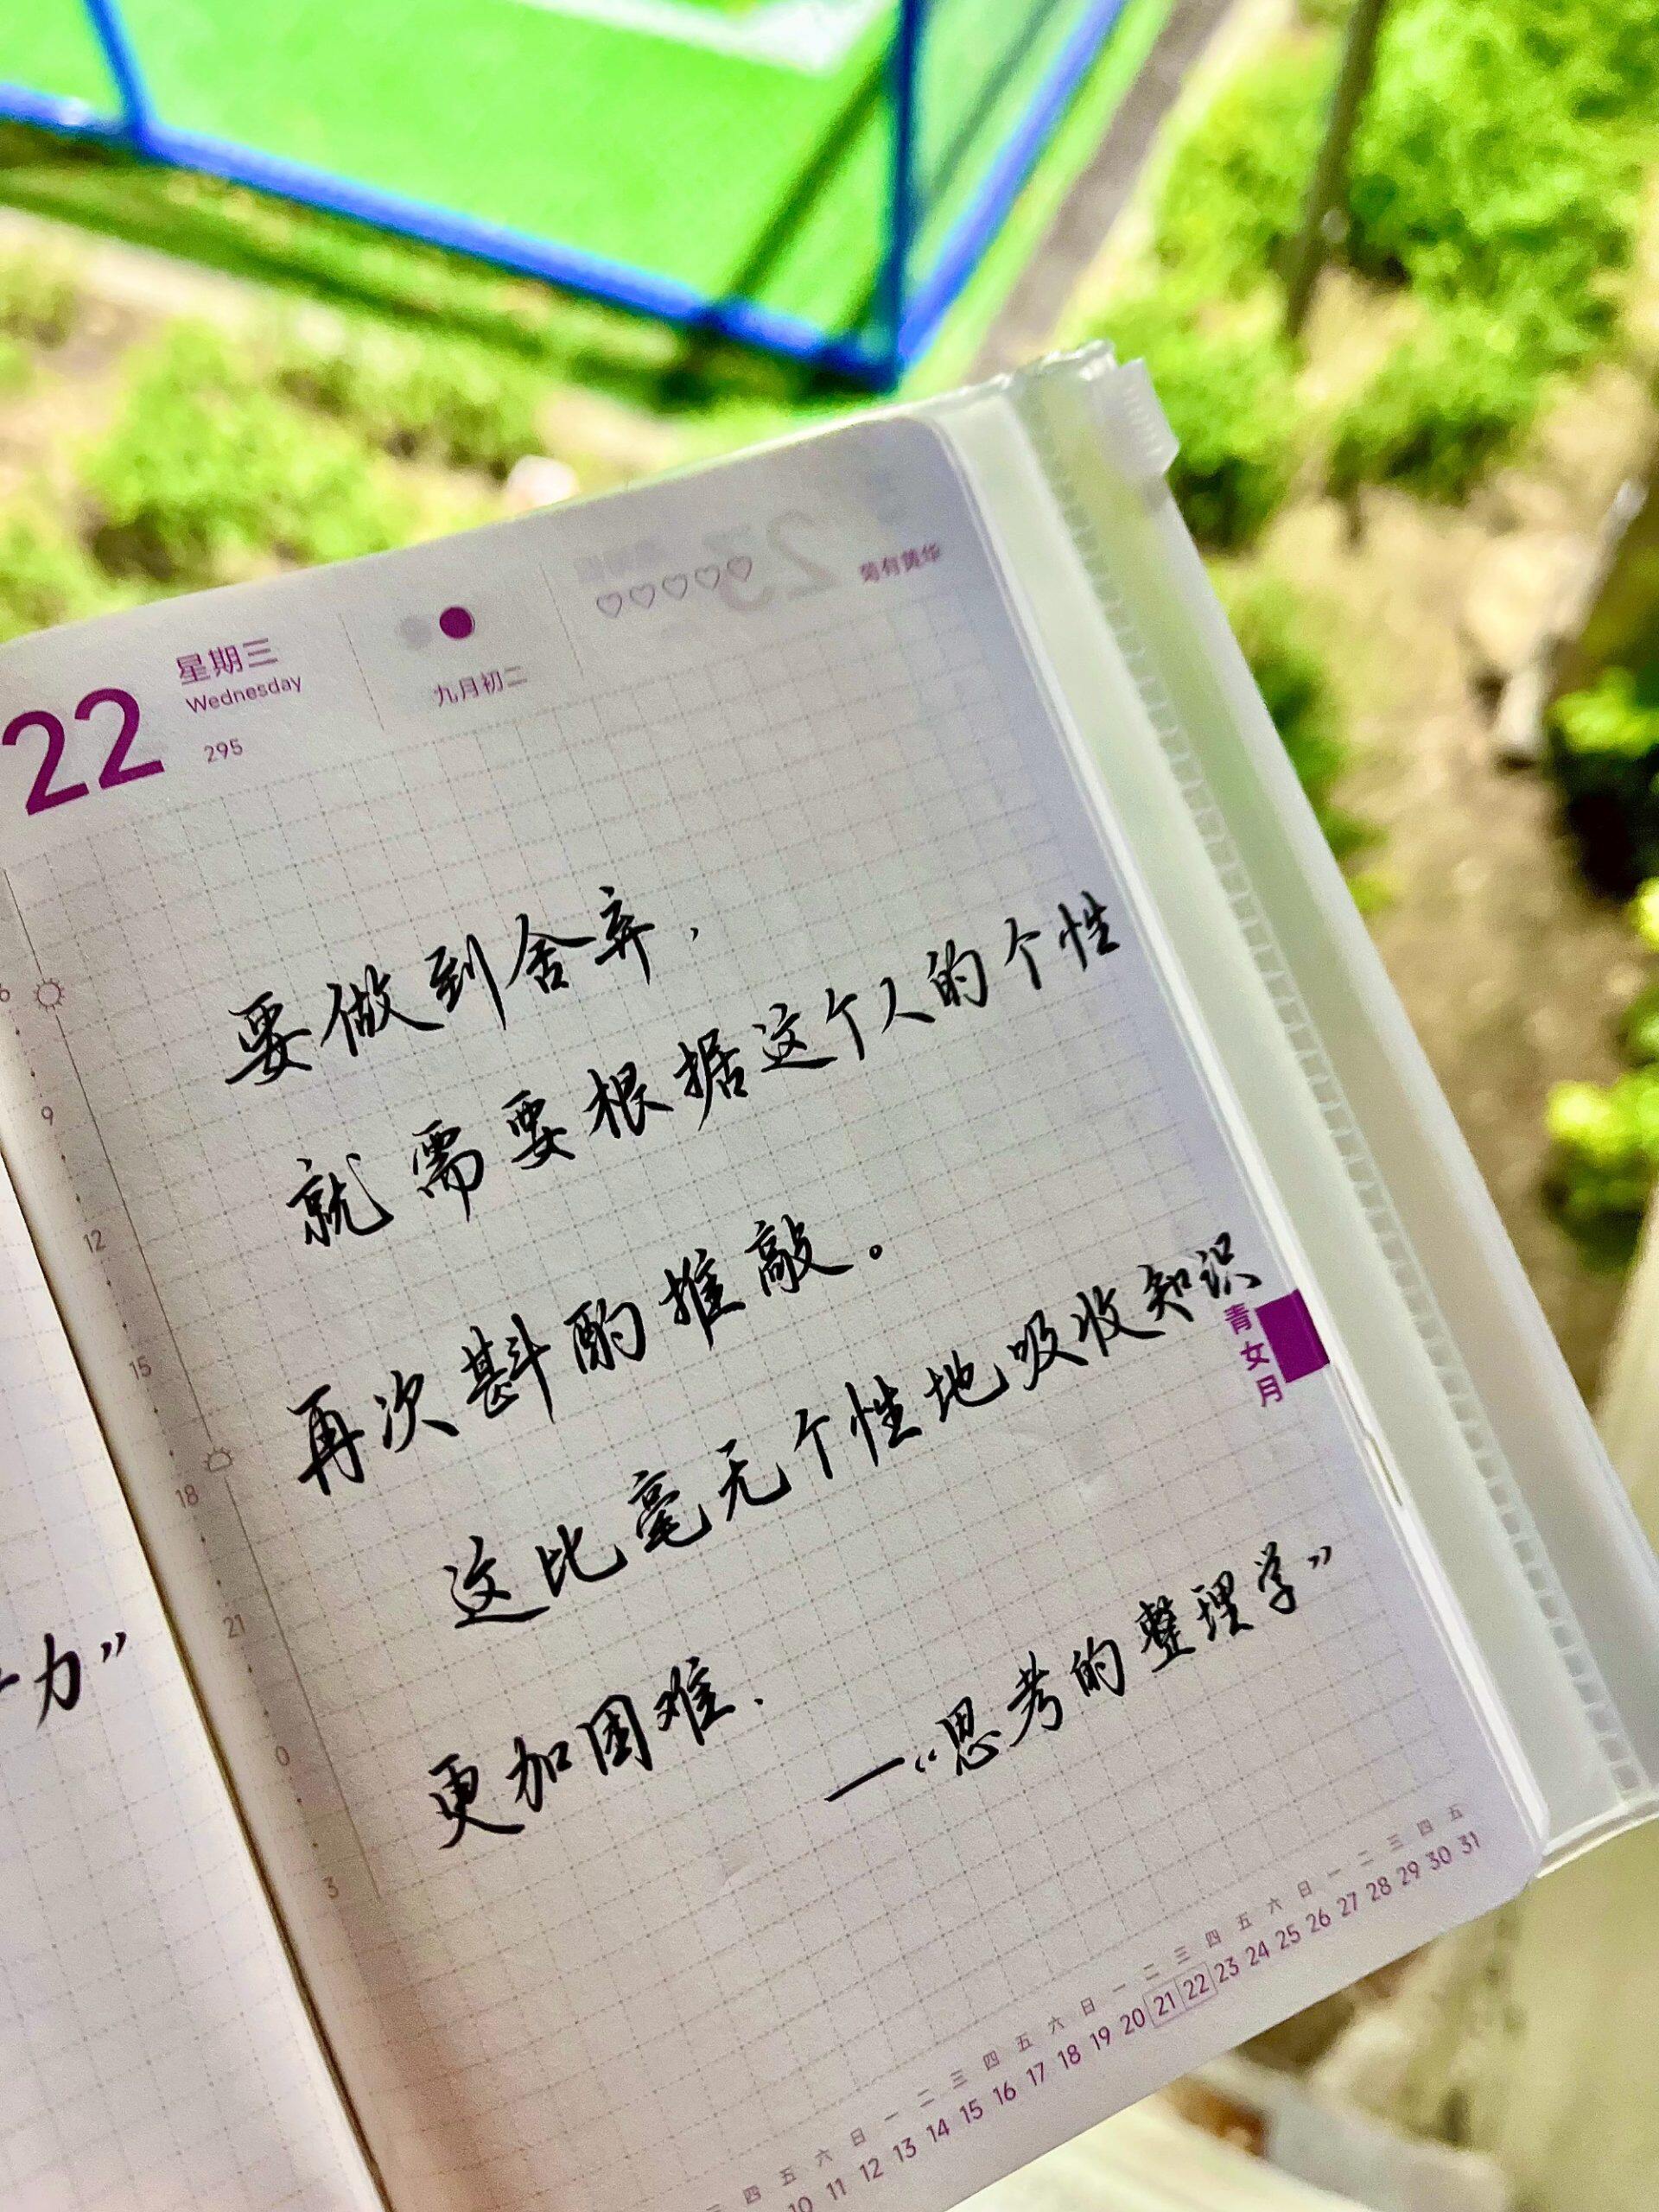 22
星期三
Wednesday
295
九月初二
菊有黄华
要做到舍弃，
就需要根据这个人的个性
再次斟酌推敲。
这比毫无个性地吸收知识
更加困难.
—“思考的整理学”
青女月
6
9
12
15
18
21
0
3
力”
四 五 六 日 一 二 三 四 五 六 日 一 二 三 四 五 六 日 一 二 三 四 五
10 11 12 13 14 15 16 17 18 19 20 21 22 23 24 25 26 27 28 29 30 31